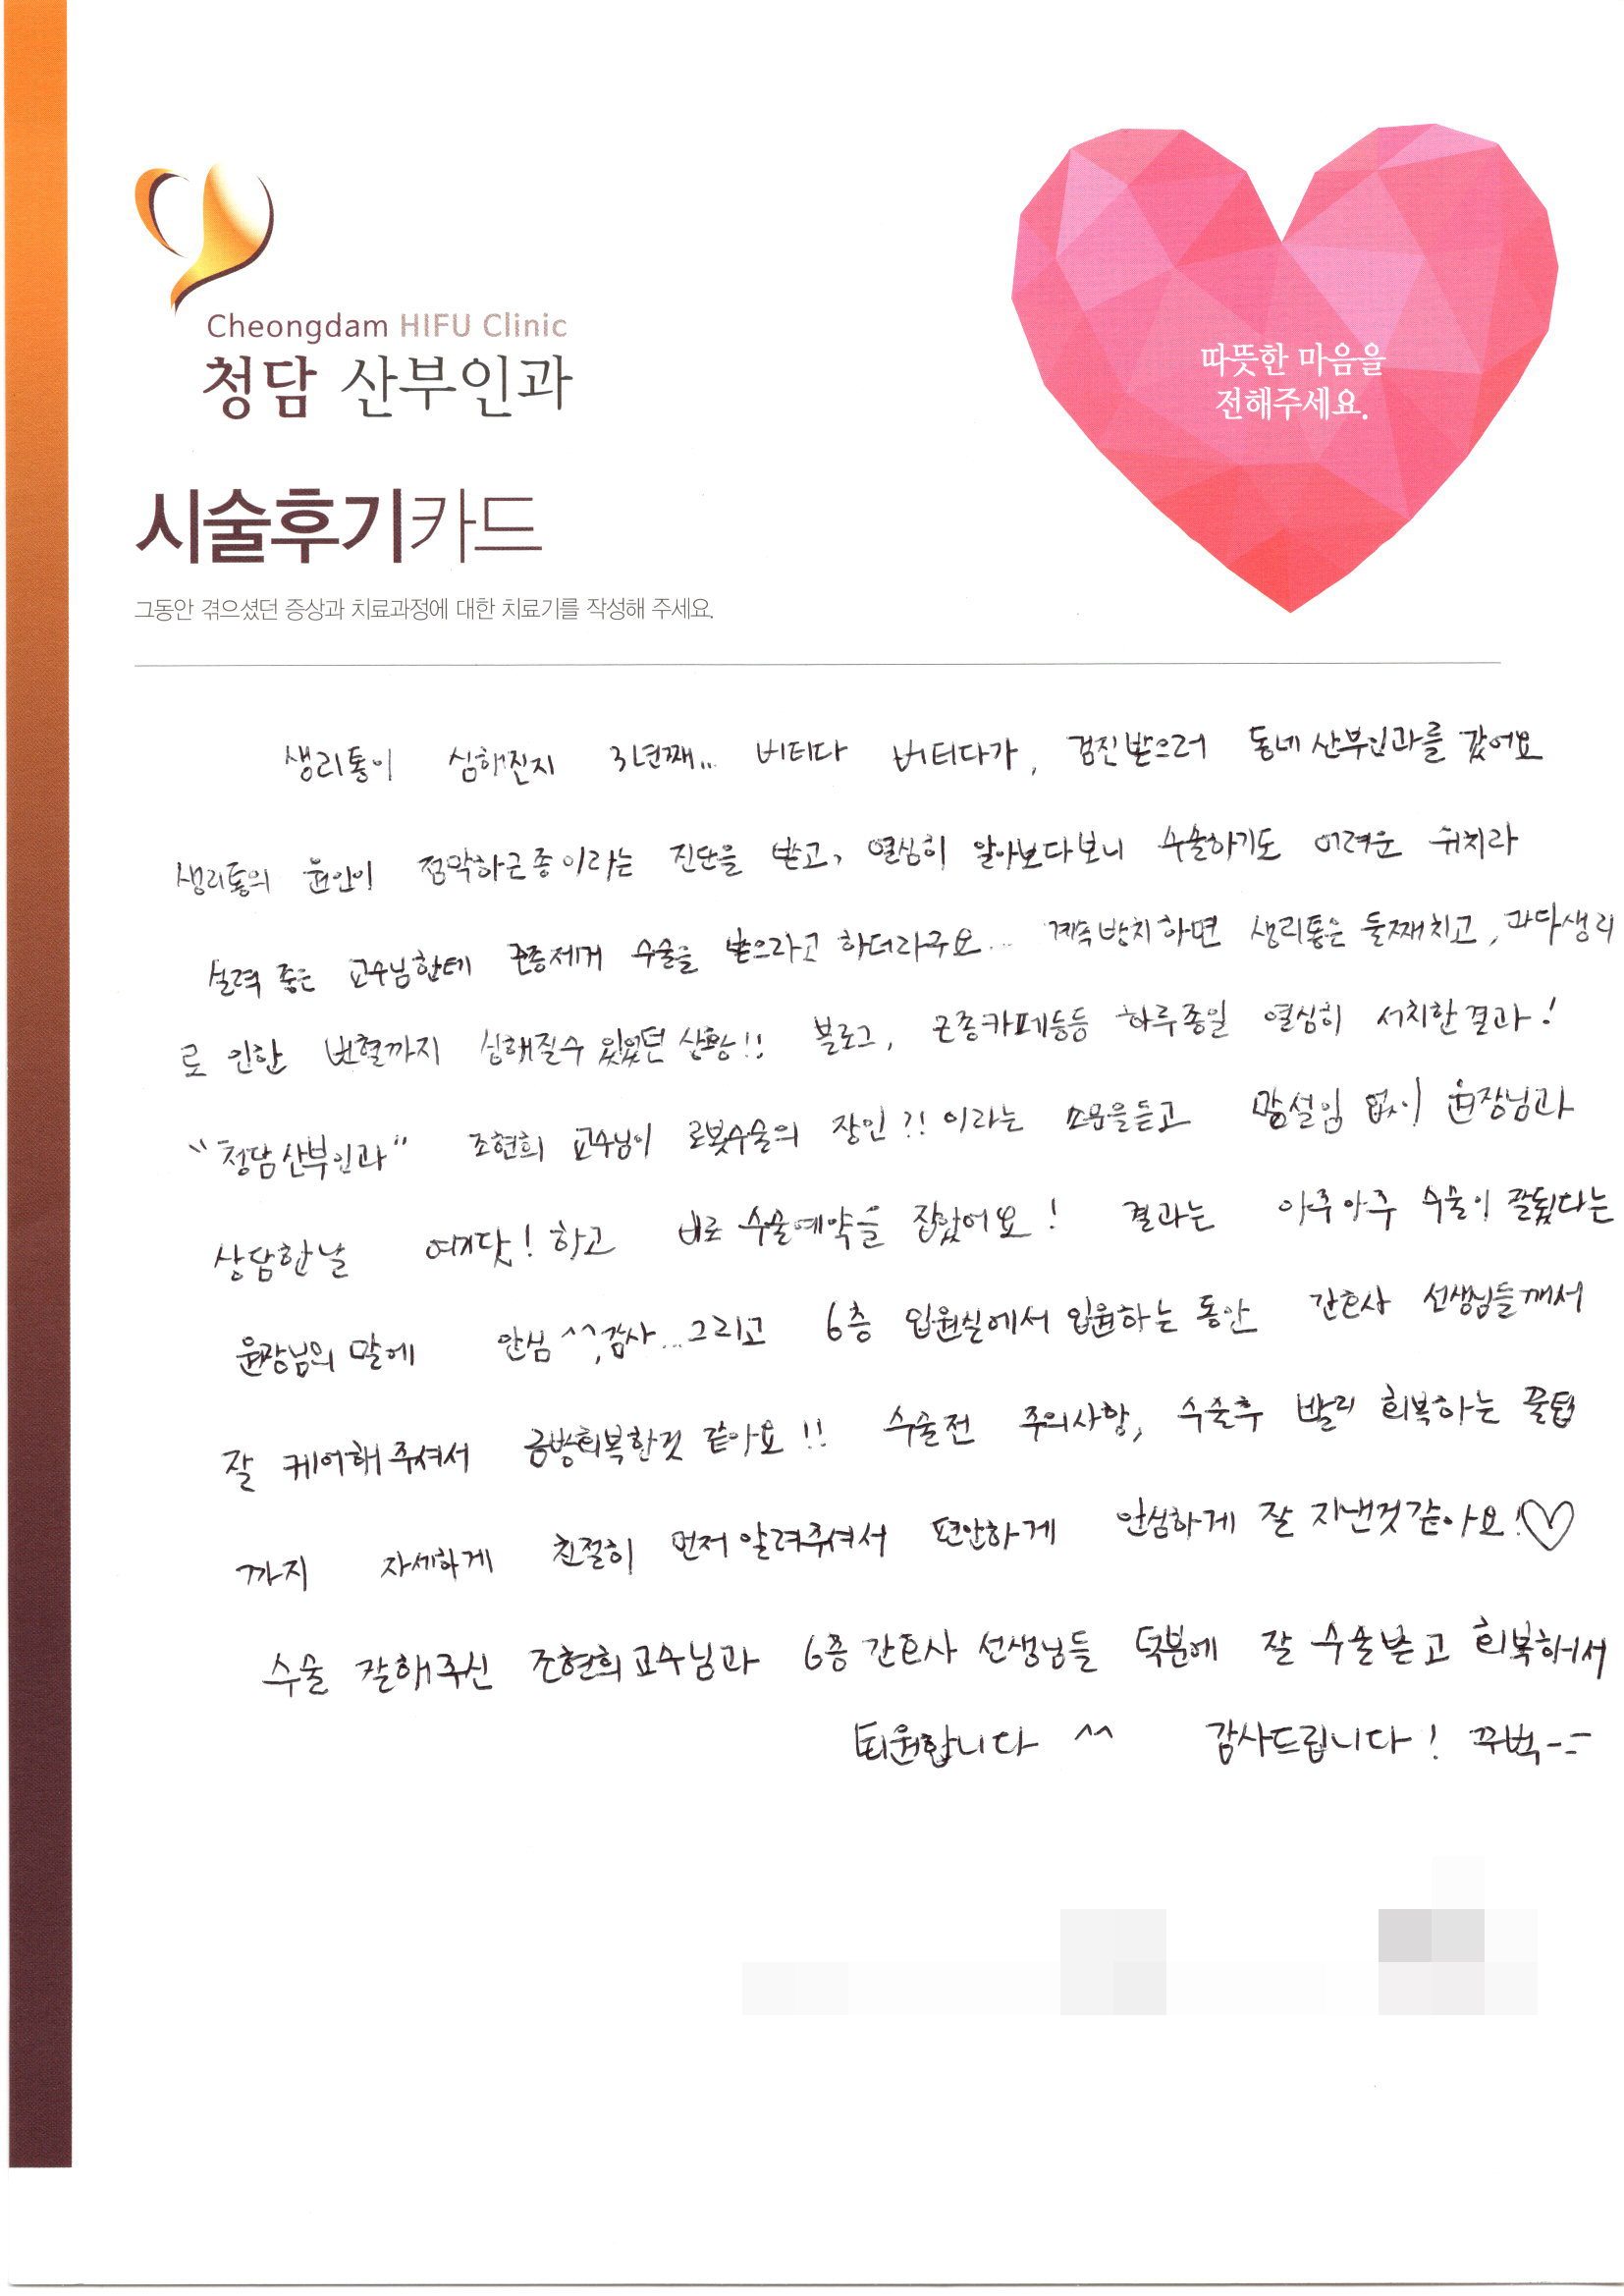 Cheongdam HIFU Clinic
청담 산부인과
따뜻한 마음을
전해주세요.
시술후기카드
그동안 겪으셨던 증상과 치료과정에 대한 치료기를 작성해 주세요.
생리통이 심해진지 3년째... 버티다 버티다가, 검진받으러 동네 산부인과를 갔어요
생리통의 원인이 점막하근종이라는 진단을 받고, 열심히 알아보다보니 수술하기도 어려운 위치라
실력 좋은 교수님한테 근종제거 수술을 받으라고 하더라구요... 계속 방치하면 생리통은 둘째치고, 과다생리
로 인한 빈혈까지 심해질수 있었던 상황!! 블로그, 근종카페등등 하루종일 열심히 서치한 결과!
"청담산부인과" 조현희 교수님이 로봇수술의 장인?! 이라는 소문을듣고 망설임 없이 원장님과
상담한날 여기닷! 하고 바로 수술예약을 잡았어요! 결과는 아주아주 수술이 잘됬다는
원장님의 말에 안심^^, 감사... 그리고 6층 입원실에서 입원하는 동안 간호사 선생님들께서
잘 케어해주셔서 금방회복한것 같아요!! 수술전 주의사항, 수술후 빨리 회복하는 꿀팁
까지 자세하게 친절히 먼저 알려주셔서 편안하게 안심하게 잘 지낸것같아요!♡
수술 잘해주신 조현희교수님과 6층 간호사 선생님들 덕분에 잘 수술받고 회복해서
퇴원합니다 ^^ 감사드립니다! 꾸벅--